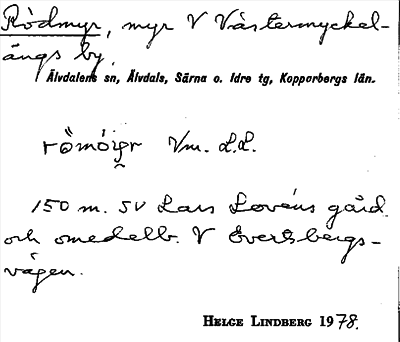 Rödmyr, myr V Västermyckel-
ängs by,
Älvdalens sn, Älvdals, Särna o. Idre tg, Kopparbergs län.
römöi̯r Vm. L.L.
150 m. SV Lars Lovéns gård
och omedelb. V Evertsbergs-
vägen.
HELGE LINDBERG 1978.